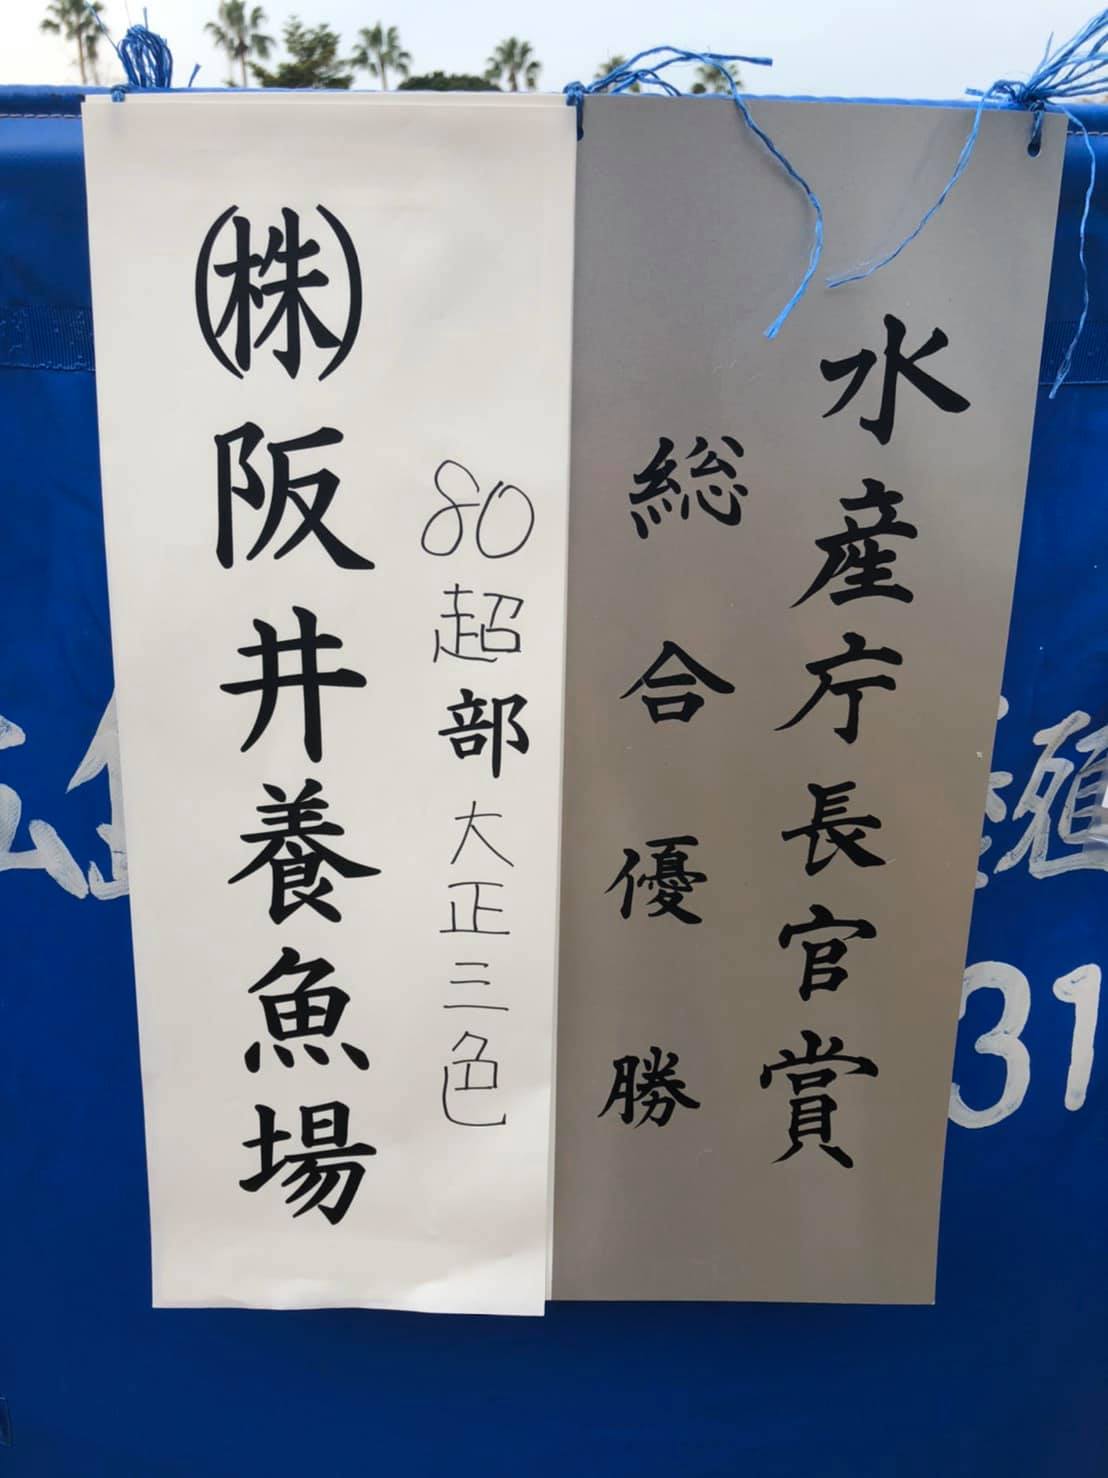 水産庁長官賞
総合優勝
80超部大正三色
㈱阪井養魚場
殖
31